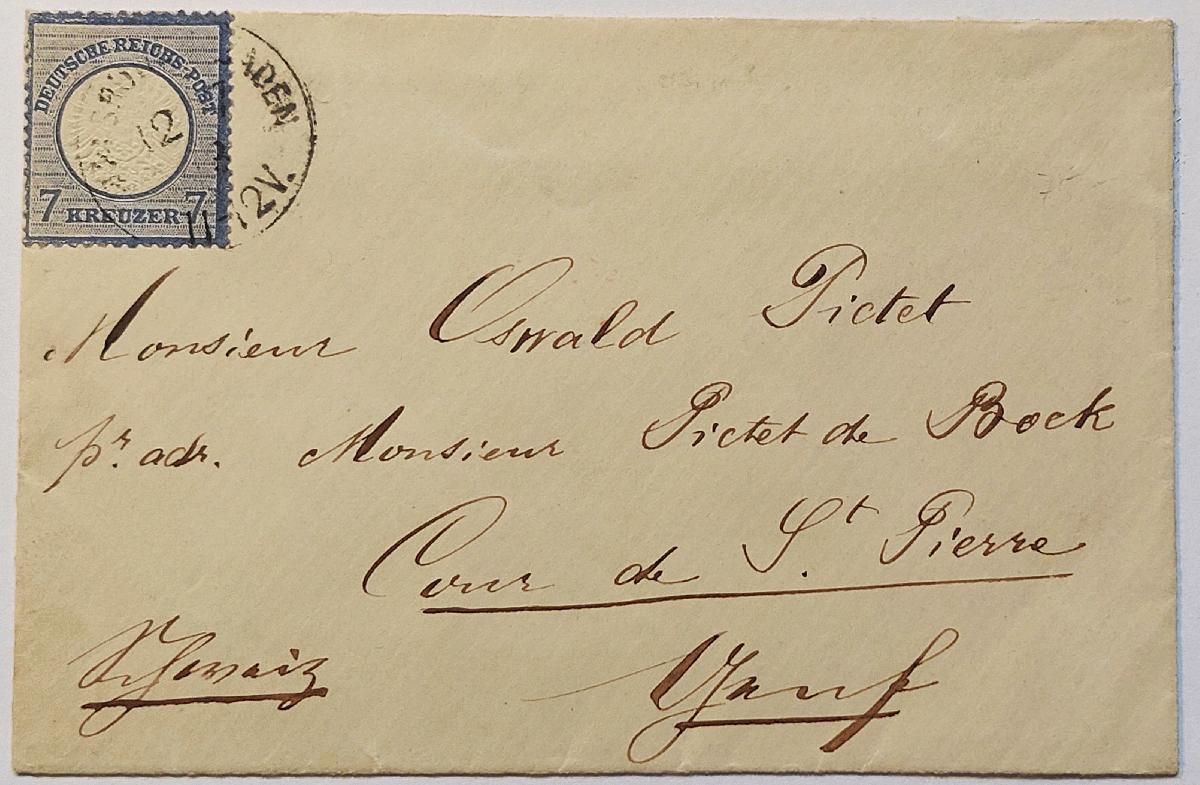 DEUTSCHE REICHS-POST
7 KREUZER 7
ADEN
12
11-12V.
Monsieur Oswald Pictet
pr. adr. Monsieur Pictet de Bock
Cour de St. Pierre
Schweiz Genf